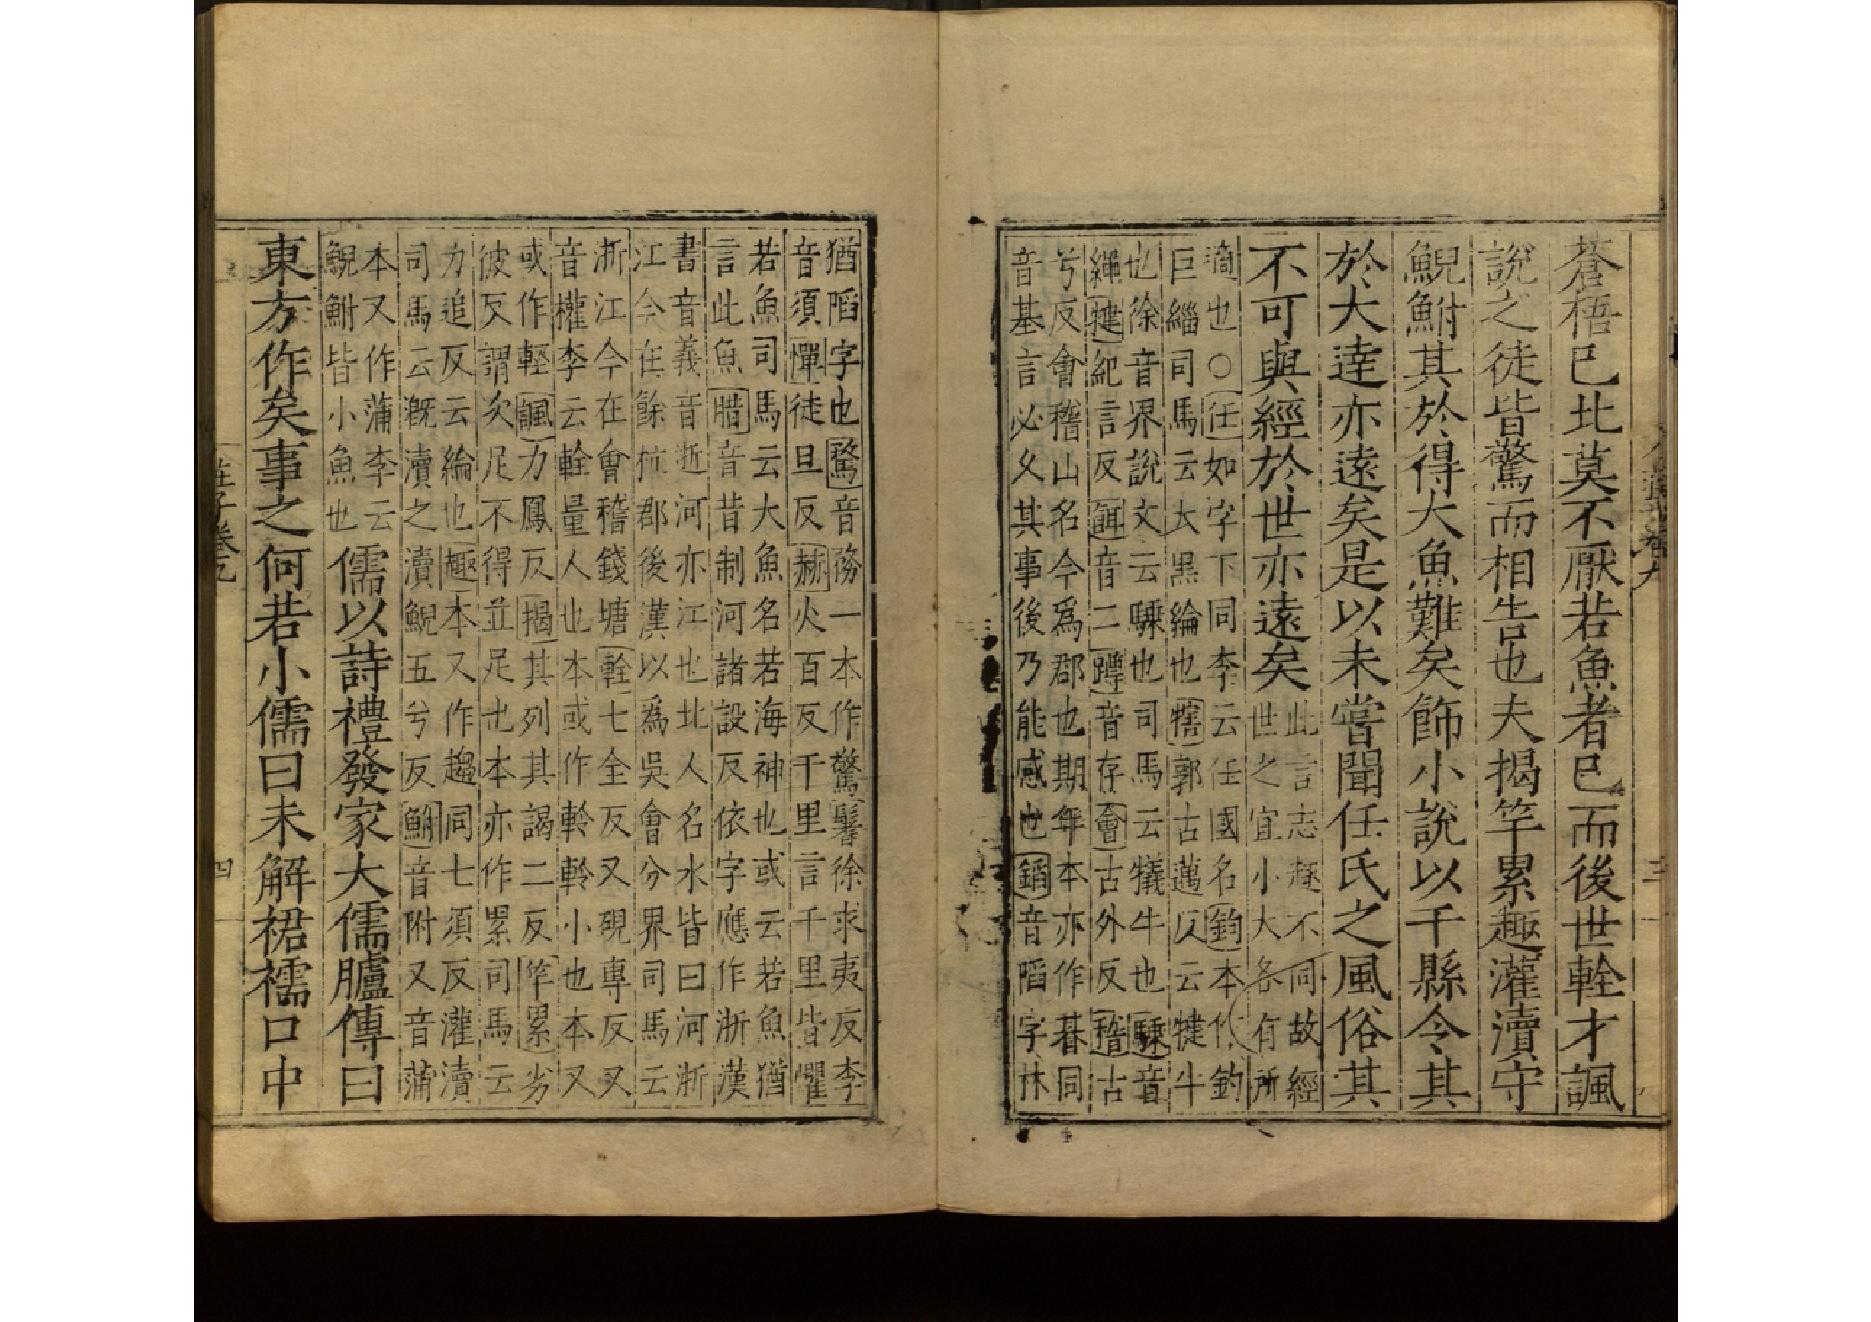 蒼梧已北莫不厭若魚者已而後世輇才諷
說之徒皆驚而相告也夫揭竿累趣灌瀆守
鯢鮒其於得大魚難矣飾小說以干縣令其
於大達亦遠矣是以未嘗聞任氏之風俗其
不可與經於世亦遠矣
此言志趣不同故經
世之宜小大各有所
適也○任如字下同李云任國名鈞本作釣
巨緇司馬云大黑綸也犗郭古邁反云犍牛
也徐音界說文云騬也司馬云犧牛也騬音
繩犍紀言反餌音二蹲音存會古外反稽古
兮反會稽山名今為郡也期年本亦作朞同
音基言必久其事後乃能感也錎音陷字林
猶陷字也騖音務一本作驚鬐徐求夷反李
音須憚徒旦反赫火百反千里言千里皆懼
若魚司馬云大魚名若海神也或云若魚猶
言此魚腊音昔制河諸設反依字應作浙漢
書音義音逝河亦江也北人名水皆曰河浙
江今在餘杭郡後漢以為吳會分界司馬云
浙江今在會稽錢塘輇七全反又硯專反又
音權李云輇量人也本或作軨軨小也本又
或作輕諷力鳳反揭其列其謁二反竿累劣
彼反謂次足不得並足也本亦作累司馬云
力追反云綸也趣本又作趨同七須反灌瀆
司馬云溉灌之瀆鯢五兮反鮒音附又音蒲
本又作蒲李云
鯢鮒皆小魚也
儒以詩禮發家大儒臚傳曰
東方作矣事之何若小儒曰未解裙襦口中
莊子卷九
四